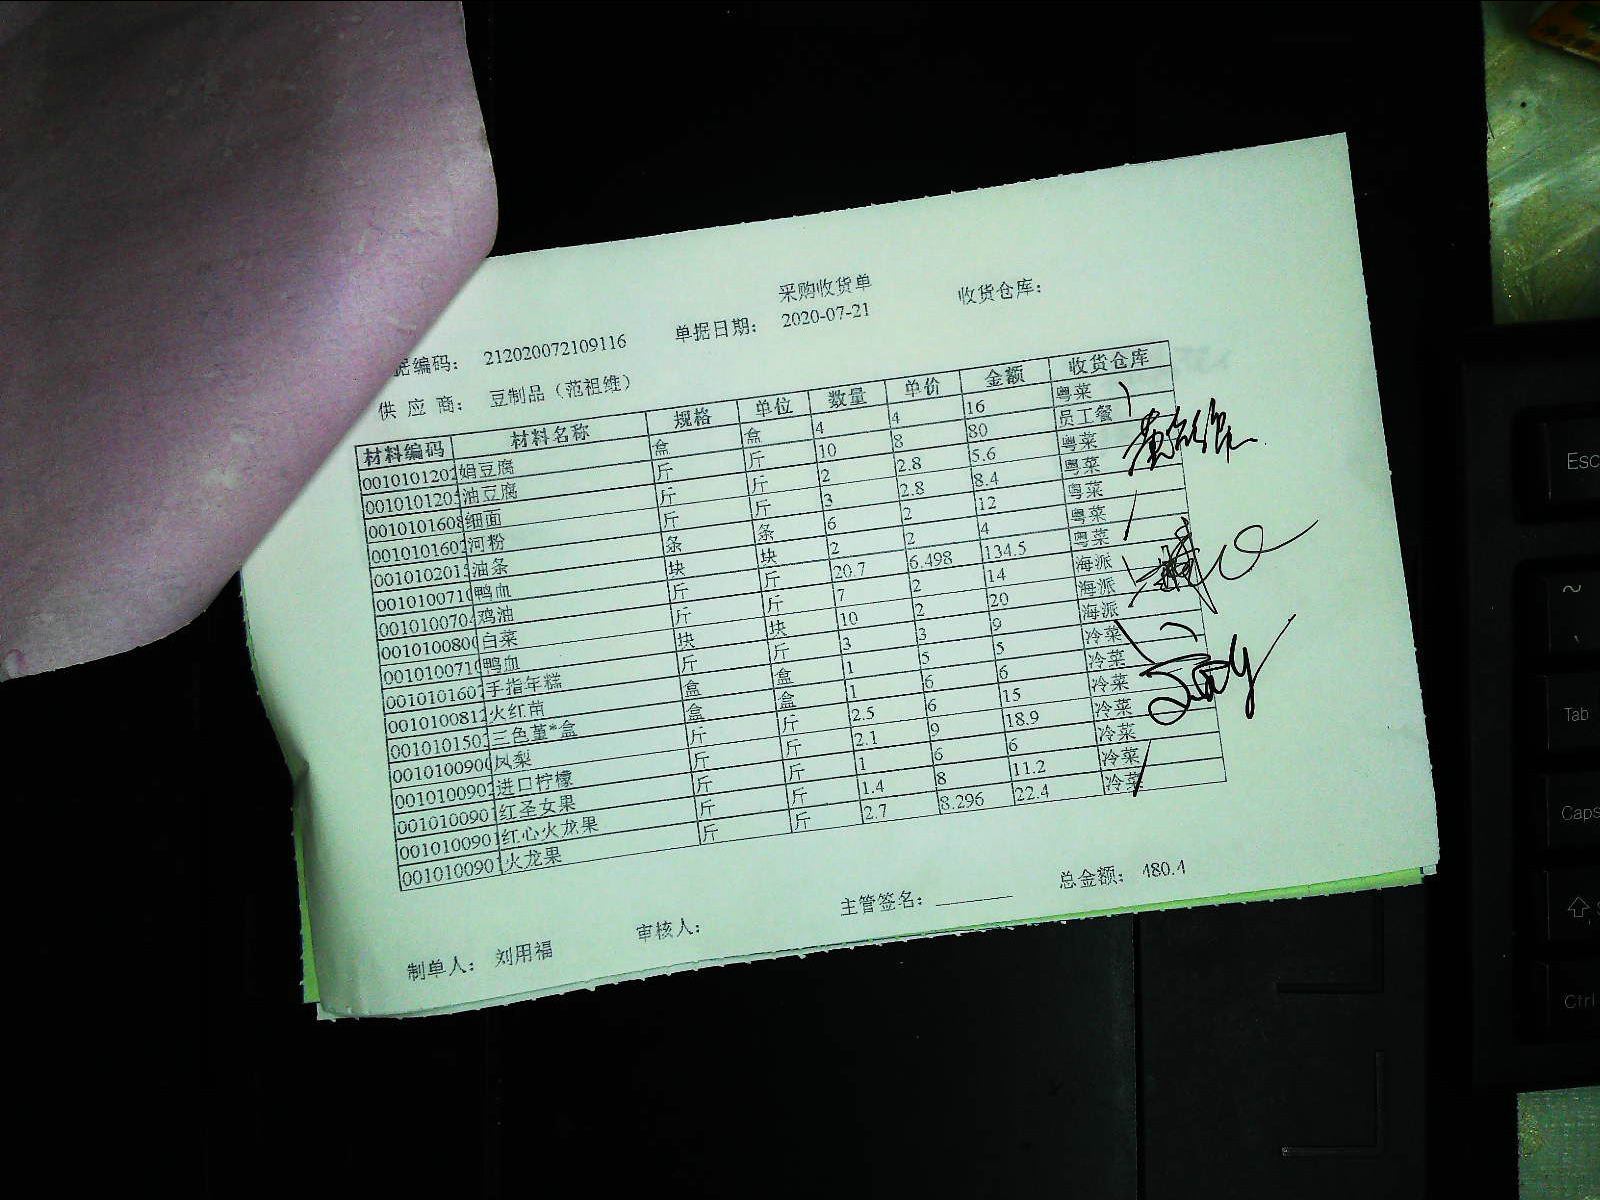 采购收货单
据编码： 212020072109116 单据日期： 2020-07-21 收货仓库：
供应商： 豆制品（范祖维）
材料编码 材料名称 规格 单位 数量 单价 金额 收货仓库
0010101202 娟豆腐 盒 盒 4 4 16 粤菜
0010101205 油豆腐 斤 斤 10 8 80 员工餐
0010101608 细面 斤 斤 2 2.8 5.6 粤菜
0010101602 河粉 斤 斤 3 2.8 8.4 粤菜
0010102015 油条 条 条 6 2 12 粤菜
0010100710 鸭血 块 块 2 2 4 粤菜
0010100704 鸡油 斤 斤 20.7 6.498 134.5 海派
0010100800 白菜 斤 斤 7 2 14 海派
0010100710 鸭血 块 块 10 2 20 海派
0010101607 手指年糕 斤 斤 3 3 9 冷菜
0010100812 火红苗 盒 盒 1 5 5 冷菜
0010101503 三色堇*盒 盒 盒 1 6 6 冷菜
0010100900 凤梨 斤 斤 2.5 6 15 冷菜
0010100902 进口柠檬 斤 斤 2.1 9 18.9 冷菜
001010090 红圣女果 斤 斤 1 6 6 冷菜
001010090 红心火龙果 斤 斤 1.4 8 11.2 冷菜
001010090 火龙果 斤 斤 2.7 8.296 22.4
制单人： 刘用福 审核人： 主管签名： 总金额：
Esc
~
Tab
Caps
Ctrl